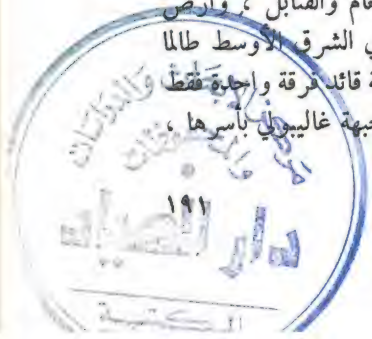 غام والقنابل ، وارض
ي الشرق الأوسط طالما
ة قائد فرقة واحدة فقط
جبهة غاليبولي بأسرها ،
١٩١
للبحوث والدراسات
والمعلومات
دار الصياد
المكتبة